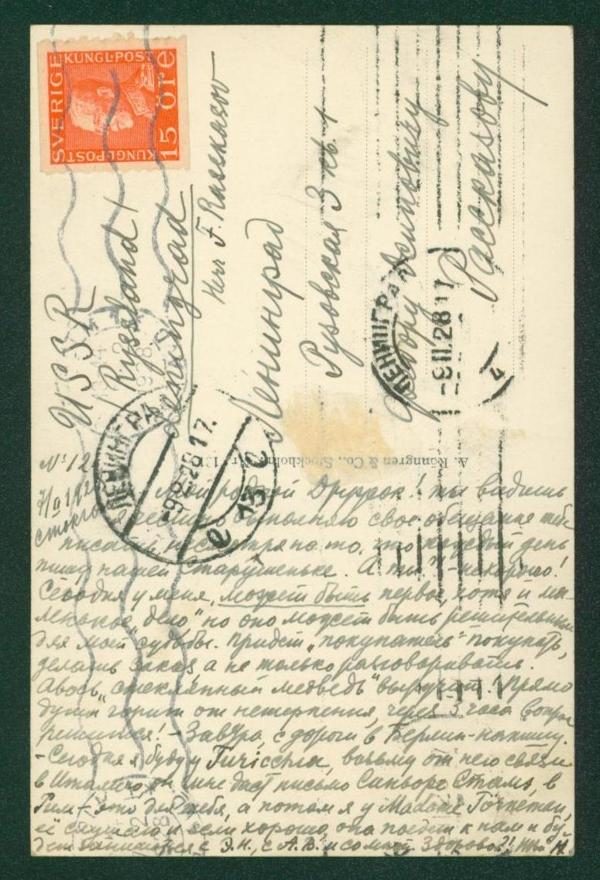 SVERIGE
KUNGL-POST
15 ÖRE
KUNGL-POST
USSR
Ryssland!
Leningrad
Herr F. Rasskasow
Ленинград
Рузовская 3 кв 1
Осиповичу
Рассказову
ЛЕНИНГРАД
-9.2.28 17.
13 е
ЛЕНИНГРАД
-9 II.28 17
A. Rönngren & Co., Stockholm
№ 12
Мой родной ! ты видишь
честно исполняю свое обещание тебе
писать несмотря на то, что каждый день
пишу нашей старушеньке. А ты - нехорошо!
Сегодня у меня, может быть первое, хотя и ма-
ленькое "дело" но оно может быть решительным
для моей судьбы. Придет "покупатель" покупать,
делать заказ а не только разговаривать.
Авось "стеклянный медведь" выручит! Прямо
душа горит от нетерпения, через 3 часа вопр
решится! - Завтра с дороги в Берлин - напишу.
- Сегодня я буду у , возьму от него связи
в Италию, он мне даст письмо Синьоре , в
Рим - это для тебя, а потом я у Madame
её слушаю и если хорошо, она поедет к нам и бу-
дет заниматься с Э.Н., с А.В. и со мной. Здорово?!